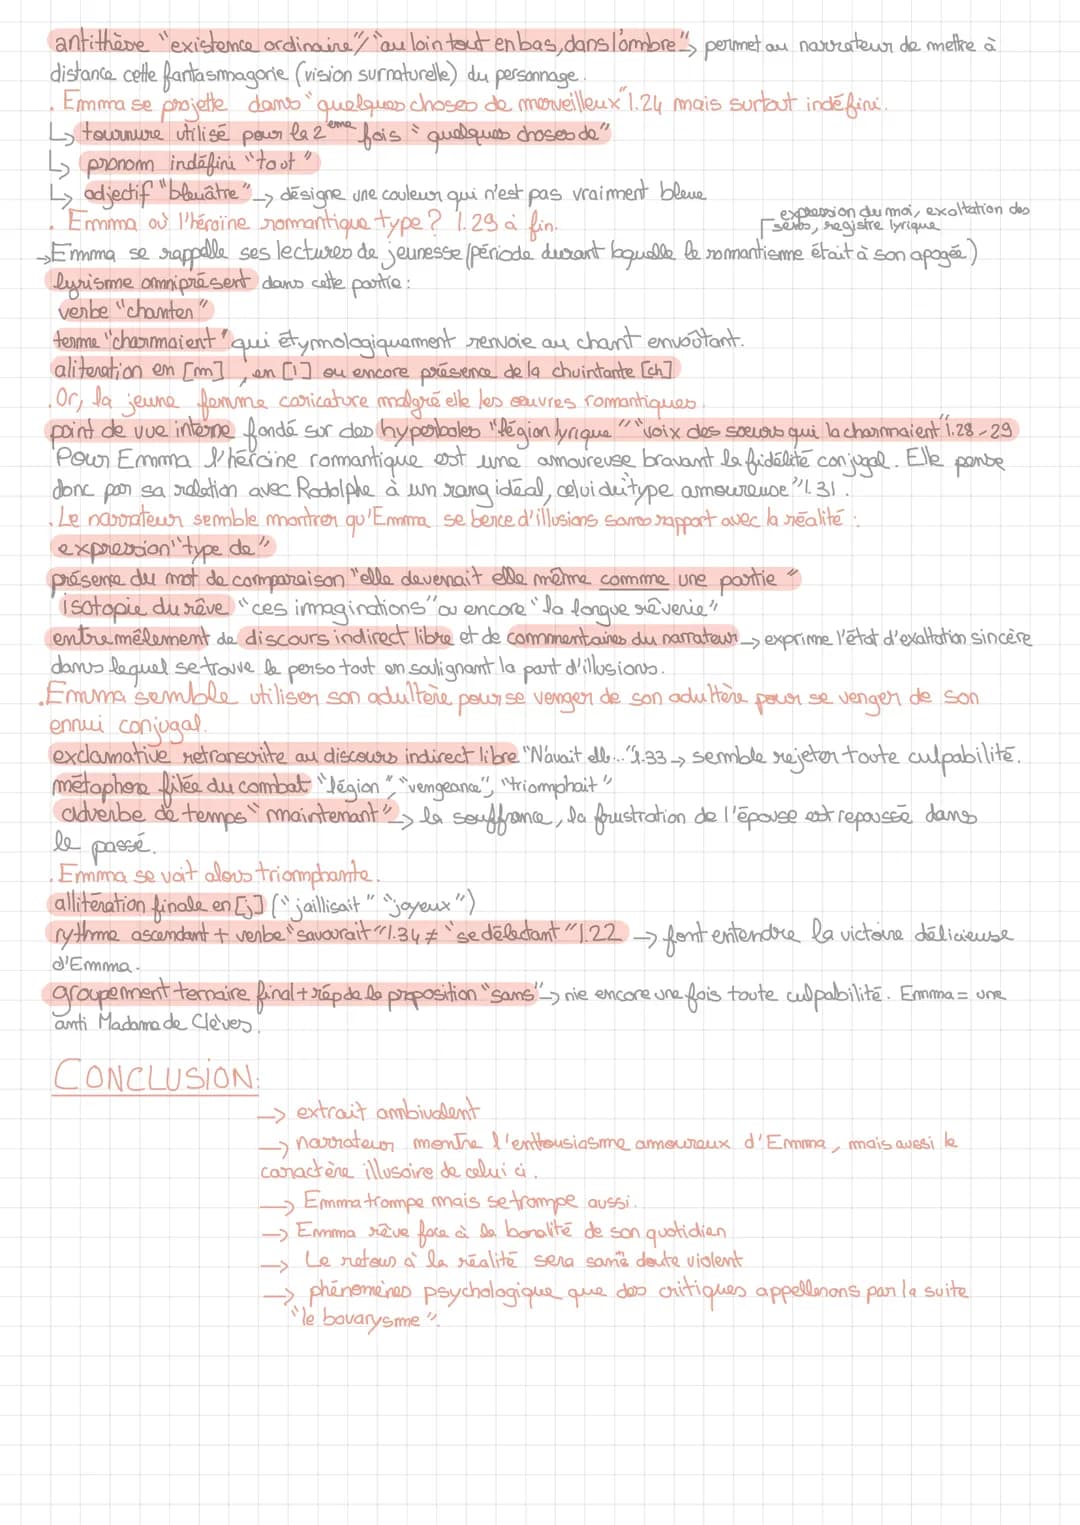 antithèse "existence ordinaire"/ "au loin tout en bas, dans l'ombre" ↳ permet au narrateur de mettre à
distance cette fantasmagorie (vision surnaturelle) du personnage.
. Emma se projette dans "quelques choses de merveilleux" l.24 mais surtout indéfini.
↳ tournure utilisé pour la 2ème fois "quelques choses de"
↳ pronom indéfini "tout"
↳ adjectif "bleuâtre" → désigne une couleur qui n'est pas vraiment bleue
. Emma où l'héroïne romantique type ? l.29 à fin.
expression du moi, exaltation des
sens, registre lyrique
→ Emma se rappelle ses lectures de jeunesse (période durant laquelle le romantisme était à son apogée)
lyrisme omniprésent dans cette partie :
verbe "chanter"
terme "charmaient" qui étymologiquement renvoie au chant envoûtant.
alitération en [m], en [l] ou encore présence de la chuintante [ch]
. Or, la jeune femme caricature malgré elle les œuvres romantiques.
point de vue interne fondé sur des hyperboles "légion lyrique" "voix des sœurs qui la charmaient" l.28-29
Pour Emma l'héroïne romantique est une amoureuse bravant la fidélité conjugal. Elle pense
donc par sa relation avec Rodolphe à un rang idéal, celui du type amoureuse" l.31.
. Le narrateur semble montrer qu'Emma se berce d'illusions sans rapport avec la réalité :
expression "type de"
présence du mot de comparaison "elle devenait elle même comme une partie"
isotopie du rêve "ces imaginations" ou encore "la longue rêverie"
entremêlement de discours indirect libre et de commentaires du narrateur → exprime l'état d'exaltation sincère
dans lequel se trouve le perso tout en soulignant la part d'illusions.
. Emma semble utiliser son adultère pour se venger de son adultère pour se venger de son
ennui conjugal.
exclamative retranscrite au discours indirect libre "N'avait elle..." l.33 → semble rejeter toute culpabilité.
métaphore filée du combat "légion", "vengeance", "triomphait"
adverbe de temps "maintenant" ↳ la souffrance, la frustration de l'épouse est repoussé dans
le passé.
. Emma se voit alors triomphante.
allitération finale en [j] ("jaillisait" "joyeux")
rythme ascendant + verbe "savourait" l.34 ≠ "se délectant" l.22 → font entendre la victoire délicieuse
d'Emma.
groupement ternaire final + rép de la préposition "sans" ↳ nie encore une fois toute culpabilité. Emma = une
anti Madame de Clèves.
CONCLUSION:
→ extrait ambivalent
→ narrateur montre l'enthousiasme amoureux d'Emma, mais aussi le
caractère illusoire de celui ci.
→ Emma trompe mais se trompe aussi.
→ Emma rêve face à la banalité de son quotidien
→ Le retour à la réalité sera sans doute violent
→ phénomènes psychologique que des critiques appellerons par la suite
"le bovarysme".